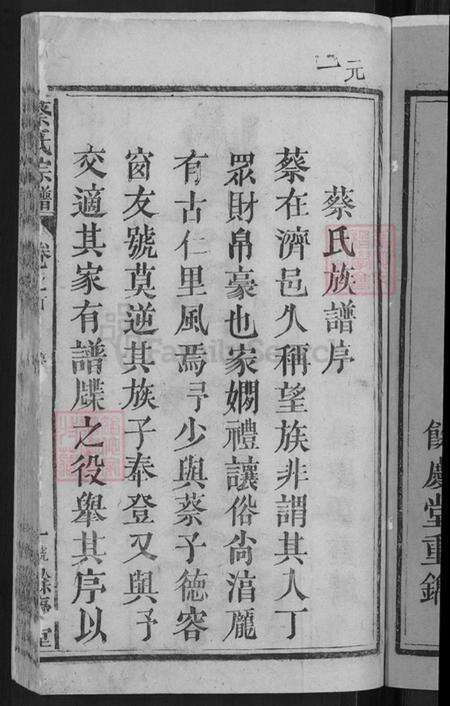 餘慶堂重鐫
元
二
蔡氏族譜序
蔡在濟邑久稱望族非謂其人丁
眾財帛豪也家嫻禮讓俗尚湻龐
有古仁里風焉予少與蔡子德容
窗友號莫逆其族子奉登又與予
交適其家有譜牒之役舉其序以
蔡氏宗譜
卷之首
FamilySearch